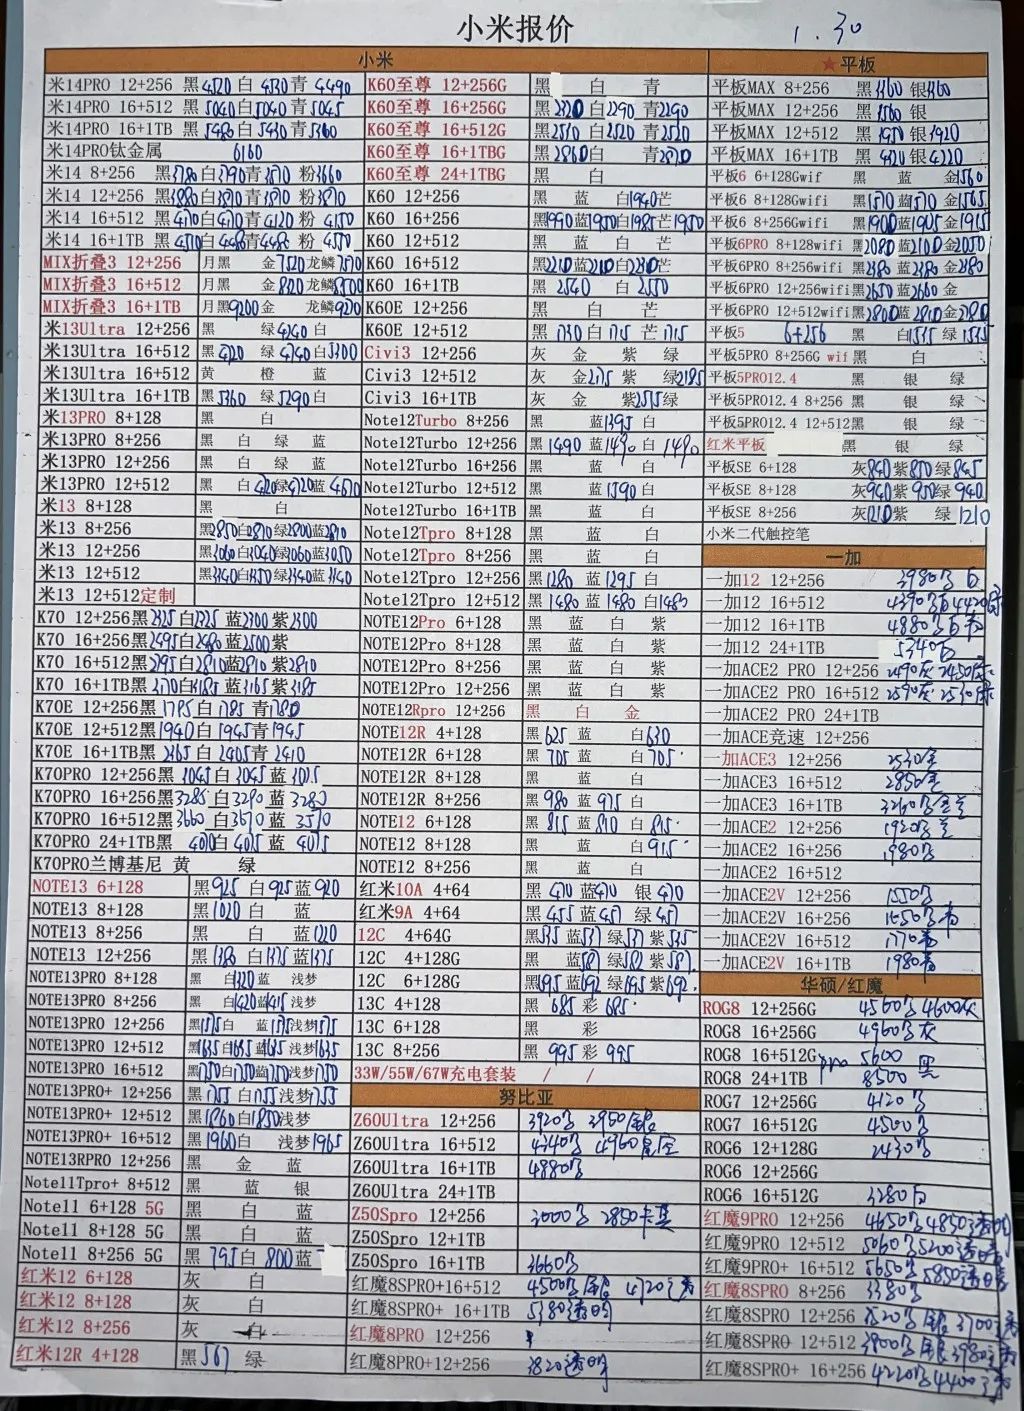 小米报价
1.30
小米
米14PRO 12+256 黑4520 白4530 青4490
米14PRO 16+512 黑5040 白5040 青5045
米14PRO 16+1TB 黑5480 白5430 青5360
米14PRO钛金属 6160
米14 8+256 黑3780 白3790 青3570 粉3660
米14 12+256 黑3880 白3870 青3870 粉3870
米14 16+512 黑4170 白4170 青4120 粉4150
米14 16+1TB 黑4510 白4485 青4485 粉4550
MIX折叠3 12+256 月黑 金7520 龙鳞7570
MIX折叠3 16+512 月黑 金 龙鳞
MIX折叠3 16+1TB 月黑9200 金 龙鳞9270
米13Ultra 12+256 黑 绿4240 白
米13Ultra 16+512 黑4720 绿4740 白5300
米13Ultra 16+512 黄 橙 蓝
米13Ultra 16+1TB 黑5360 绿5290 白
米13PRO 8+128 黑 白
米13PRO 8+256 黑 白 绿 蓝
米13PRO 12+256 黑 白 绿 蓝
米13PRO 12+512 黑 白4720 绿4720 蓝4670
米13 8+128 黑 白
米13 8+256 黑2850 白2870 绿2800 蓝2810
米13 12+256 黑3060 白3040 绿3060 蓝3050
米13 12+512 黑3340 白3350 绿3340 蓝3340
米13 12+512定制
K70 12+256 黑2325 白2325 蓝2300 紫2300
K70 16+256 黑2495 白2480 蓝2500 紫
K70 16+512 黑2795 白2810 蓝2810 紫2810
K70 16+1TB 黑3170 白3185 蓝3165 紫3185
K70E 12+256 黑1785 白1785 青1780
K70E 12+512 黑1940 白1945 青1945
K70E 16+1TB 黑2365 白2405 青2410
K70PRO 12+256 黑3045 白3045 蓝3025
K70PRO 16+256 黑3285 白3290 蓝3280
K70PRO 16+512 黑3660 白3670 蓝3570
K70PRO 24+1TB 黑4070 白4075 蓝4075
K70PRO兰博基尼 黄 绿
NOTE13 6+128 黑925 白925 蓝920
NOTE13 8+128 黑1020 白 蓝
NOTE13 8+256 黑 白 蓝1220
NOTE13 12+256 黑1380 白1375 蓝1375
NOTE13PRO 8+128 黑 白1320 蓝 浅梦
NOTE13PRO 8+256 黑 白1420 蓝1415 浅梦
NOTE13PRO 12+256 黑1575 白 蓝1575 浅梦1575
NOTE13PRO 12+512 黑1635 白1635 蓝1635 浅梦1635
NOTE13PRO 16+512 黑1750 白1750 蓝1750 浅梦1750
NOTE13PRO+ 12+256 黑1755 白1755 蓝1755 浅梦1755
NOTE13PRO+ 12+512 黑1860 白1850 浅梦
NOTE13PRO+ 16+512 黑1960 白 浅梦1965
NOTE13RPRO 12+256 黑 金 蓝
Note11Tpro+ 8+512 黑 蓝 银
Note11 6+128 5G 黑 白 蓝
Note11 8+128 5G 黑 白 蓝
Note11 8+256 5G 黑795 白800 蓝
红米12 6+128 灰 白
红米12 8+128 灰 白
红米12 8+256 灰 白
红米12R 4+128 黑567 绿
K60至尊 12+256G 黑 白 青
K60至尊 16+256G 黑2320 白2290 青2290
K60至尊 16+512G 黑2510 白2520 青2520
K60至尊 16+1TBG 黑2860 白 青2870
K60至尊 24+1TBG 黑 白
K60 12+256 黑 蓝 白1940 芒
K60 16+256 黑1990 蓝1950 白1985 芒1950
K60 12+512 黑 蓝 白 芒
K60 16+512 黑2210 蓝2210 白2230 芒
K60 16+1TB 黑2540 白2550
K60E 12+256 黑 白 芒
K60E 12+512 黑1730 白1715 芒1715
Civi3 12+256 灰 金 紫 绿
Civi3 12+512 灰 金2175 紫 绿2185
Civi3 16+1TB 灰 金 紫2575 绿
Note12Turbo 8+256 黑 蓝1395 白
Note12Turbo 12+256 黑1490 蓝1490 白1490
Note12Turbo 16+256 黑 蓝 白
Note12Turbo 12+512 黑 蓝1590 白
Note12Turbo 16+1TB 黑 蓝 白
Note12Tpro 8+128 黑 蓝 白
Note12Tpro 8+256 黑 蓝 白
Note12Tpro 12+256 黑1280 蓝1295 白
Note12Tpro 12+512 黑1480 蓝1480 白1480
NOTE12Pro 6+128 黑 蓝 白 紫
NOTE12Pro 8+128 黑 蓝 白 紫
NOTE12Pro 8+256 黑 蓝 白 紫
NOTE12Pro 12+256 黑 蓝 白 紫
NOTE12Rpro 12+256 黑 白 金
NOTE12R 4+128 黑625 蓝 白630
NOTE12R 6+128 黑705 蓝 白705
NOTE12R 8+128 黑 蓝 白
NOTE12R 8+256 黑980 蓝975 白
NOTE12 6+128 黑815 蓝810 白815
NOTE12 8+128 黑 蓝 白915
NOTE12 8+256 黑 蓝 白
红米10A 4+64 黑470 蓝470 银470
红米9A 4+64 黑455 蓝457 绿457
12C 4+64G 黑535 蓝537 绿537 紫535
12C 4+128G 黑 蓝587 绿582 紫587
12C 6+128G 黑695 蓝692 绿695 紫692
13C 4+128 黑685 彩685
13C 6+128 黑 彩
13C 8+256 黑995 彩995
33W/55W/67W充电套装 / /
努比亚
Z60Ultra 12+256 3920黑 3950银
Z60Ultra 16+512 4340黑 4960星空
Z60Ultra 16+1TB 4880黑
Z60Ultra 24+1TB
Z50Spro 12+256 3000黑 2850卡其
Z50Spro 12+1TB
Z50Spro 16+1TB 3660黑
红魔8SPRO+16+512 4500黑/银 4720透
红魔8SPRO+ 16+1TB 5380透明
红魔8PRO 12+256
红魔8PRO+12+256 3820透明
★平板
平板MAX 8+256 黑3360 银3360
平板MAX 12+256 黑3560 银
平板MAX 12+512 黑3950 银3920
平板MAX 16+1TB 黑4320 银4220
平板6 6+128Gwif 黑 蓝 金1560
平板6 8+128Gwifi 黑1570 蓝1570 金1565
平板6 8+256Gwifi 黑1900 蓝1905 金1915
平板6PRO 8+128wifi 黑2080 蓝2100 金2050
平板6PRO 8+256wifi 黑2380 蓝2380 金2380
平板6PRO 12+256wifi 黑2650 蓝2660 金
平板6PRO 12+512wifi 黑2800 蓝2810 金2780
平板5 6+256 黑 白1535 绿1535
平板5PRO 8+256G wif 黑 白
平板5PRO12.4 黑 银 绿
平板5PRO12.4 8+256 黑 银 绿
平板5PRO12.4 12+512 黑 银 绿
红米平板 黑 银 绿
平板SE 6+128 灰840 紫850 绿845
平板SE 8+128 灰940 紫950 绿940
平板SE 8+256 灰1210 紫 绿1210
小米二代触控笔
一加
一加12 12+256 3980黑白
一加12 16+512 4390黑白 4420绿
一加12 16+1TB 4880黑白
一加12 24+1TB 5340白
一加ACE2 PRO 12+256 2490灰 2450绿
一加ACE2 PRO 16+512 2590灰 2530绿
一加ACE2 PRO 24+1TB
一加ACE竞速 12+256
一加ACE3 12+256 2530金
一加ACE3 16+512 2850金
一加ACE3 16+1TB 3260黑金兰
一加ACE2 12+256 1920黑兰
一加ACE2 16+256 1980黑
一加ACE2 16+512
一加ACE2V 12+256 1550黑
一加ACE2V 16+256 1650黑青
一加ACE2V 16+512 1770青
一加ACE2V 16+1TB 1980青
华硕/红魔
ROG8 12+256G 4560黑 4600灰
ROG8 16+256G 4960黑灰
ROG8 16+512G pro 5600 黑
ROG8 24+1TB 8500
ROG7 12+256G 4120黑
ROG7 16+512G 4500黑
ROG6 12+128G 2430黑
ROG6 12+256G
ROG6 16+512G 3280白
红魔9PRO 12+256 4650黑 4850透明
红魔9PRO 12+512 5060黑 5200透明
红魔9PRO+ 16+512 5650黑 5850透明
红魔8SPRO 8+256 3380黑
红魔8SPRO 12+256 3520黑/银 3700透
红魔8SPRO 12+512 3900黑/银 3980透
红魔8SPRO+ 16+256 4220黑 4400透